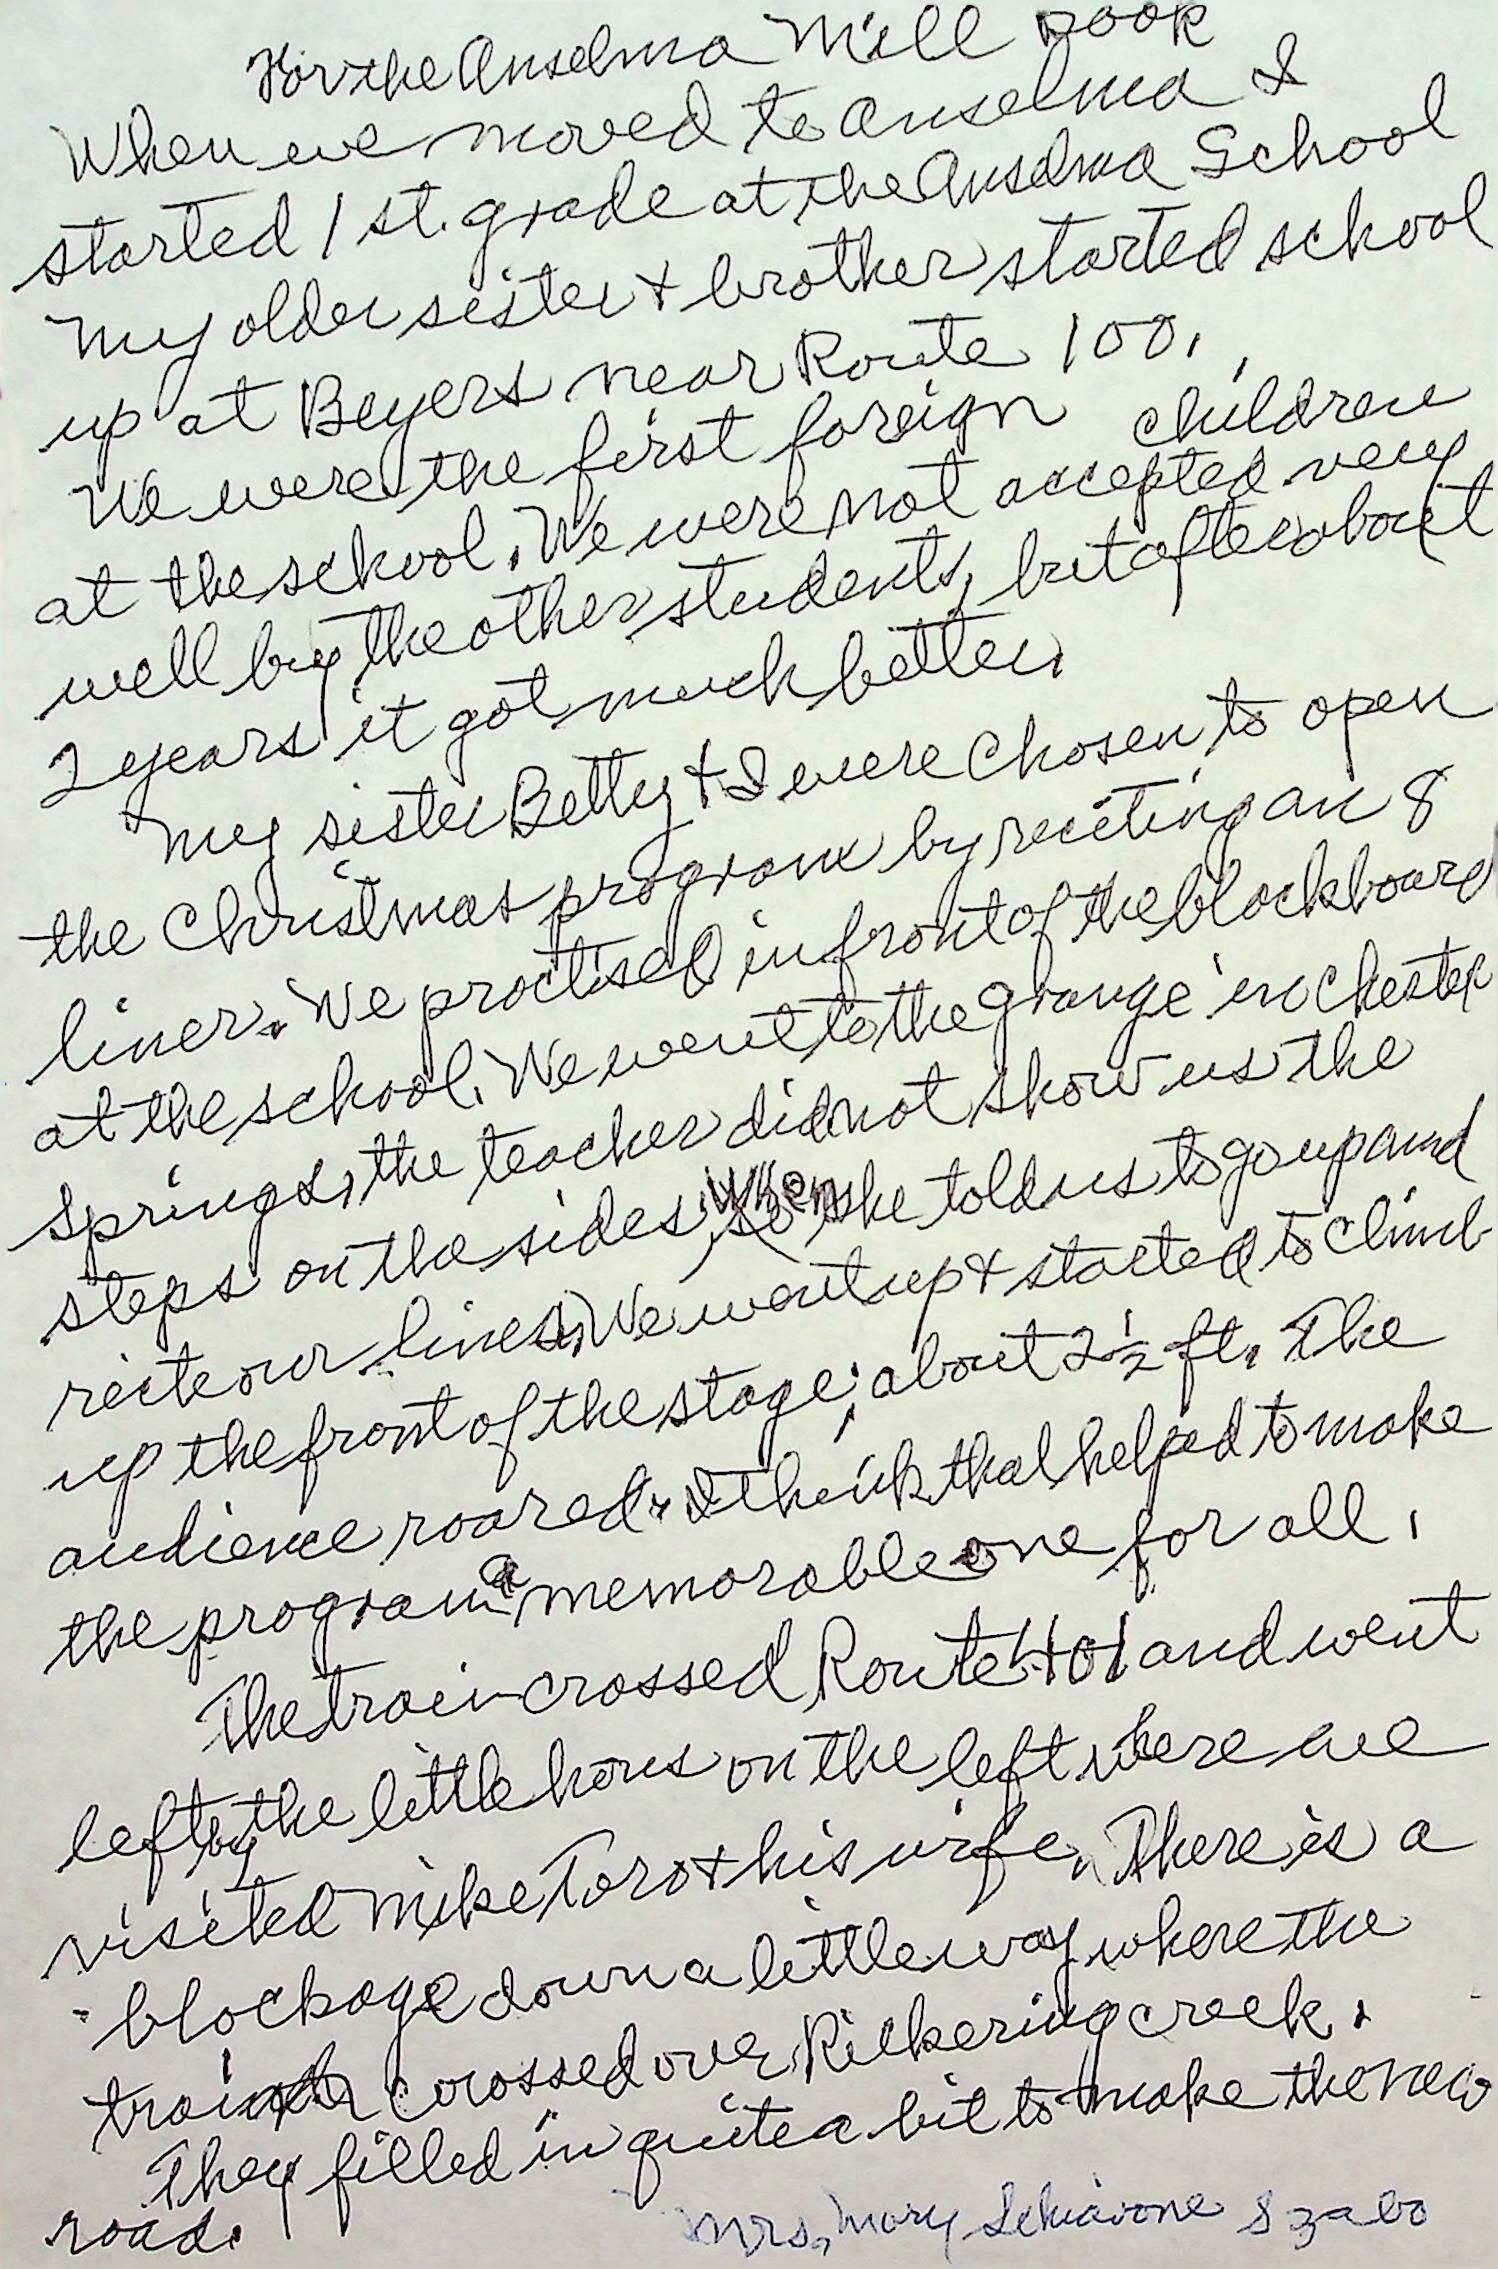 For the Anselma Mill book
When we moved to Anselma I
started 1st. grade at the Anselma School
My older sister + brother started school
up at Beyers near Route 100.
We were the first foreign children
at the school. We were not accepted very
well by the other students, but after about
2 years it got much better.
My sister Betty + I were chosen to open
the Christmas program by reciting an 8
liner. We practised in front of the blackboard
at the school. We went to the Grange in Chester
Springs, the teacher did not show us the
steps on the sides, When she told us to go up and
recite our lines, We went up + started to climb
up the front of the stage, about 2 1/2 ft. The
audience roared. I think that helped to make
the program a memorable one for all.
The train crossed Route 401 and went
left by the little hous on the left where we
visited Mike Toro + his wife. There is a
blockage down a little way where the
train crossed over Pickering creek.
They filled in quite a bit to make the new
road.
Mrs. Mary Schiavone Szabo